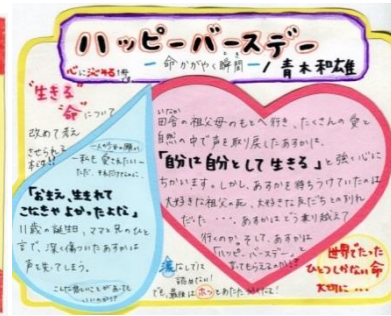 ハッピーバースデー
心に染みる1冊
― 命かがやく瞬間 ― / 青木和雄
"生きる"
"命"について
改めて考え
させられる
本!!
一人の少女の願い
―私も愛されたい―
ただ、それだけなのに…
「おまえ、生まれて
こなきゃよかったよな」
11歳の誕生日、ママと兄のひと
言で、深く傷ついたあすかは
声を失ってしまう。
こんな悲しいことがあっても
いいのか!?
田舎の祖父母のもとへ行き、たくさんの愛と
自然の中で声を取り戻したあすかは、
「自分は自分として生きる」と強く心に
ちかいます。しかし、あすかを待ちうけていたのは
大好きな祖父の死、大好きな友だちとの別れ
だった…。あすかはどう乗り越えて
行くのか。そして、あすかは
「ハッピーバースデー」と
言ってもらえるのか!?
涙なしでは
読めない!
でも、最後はホッとあたたかくて!
世界でたった
ひとつしかない命
大切に…